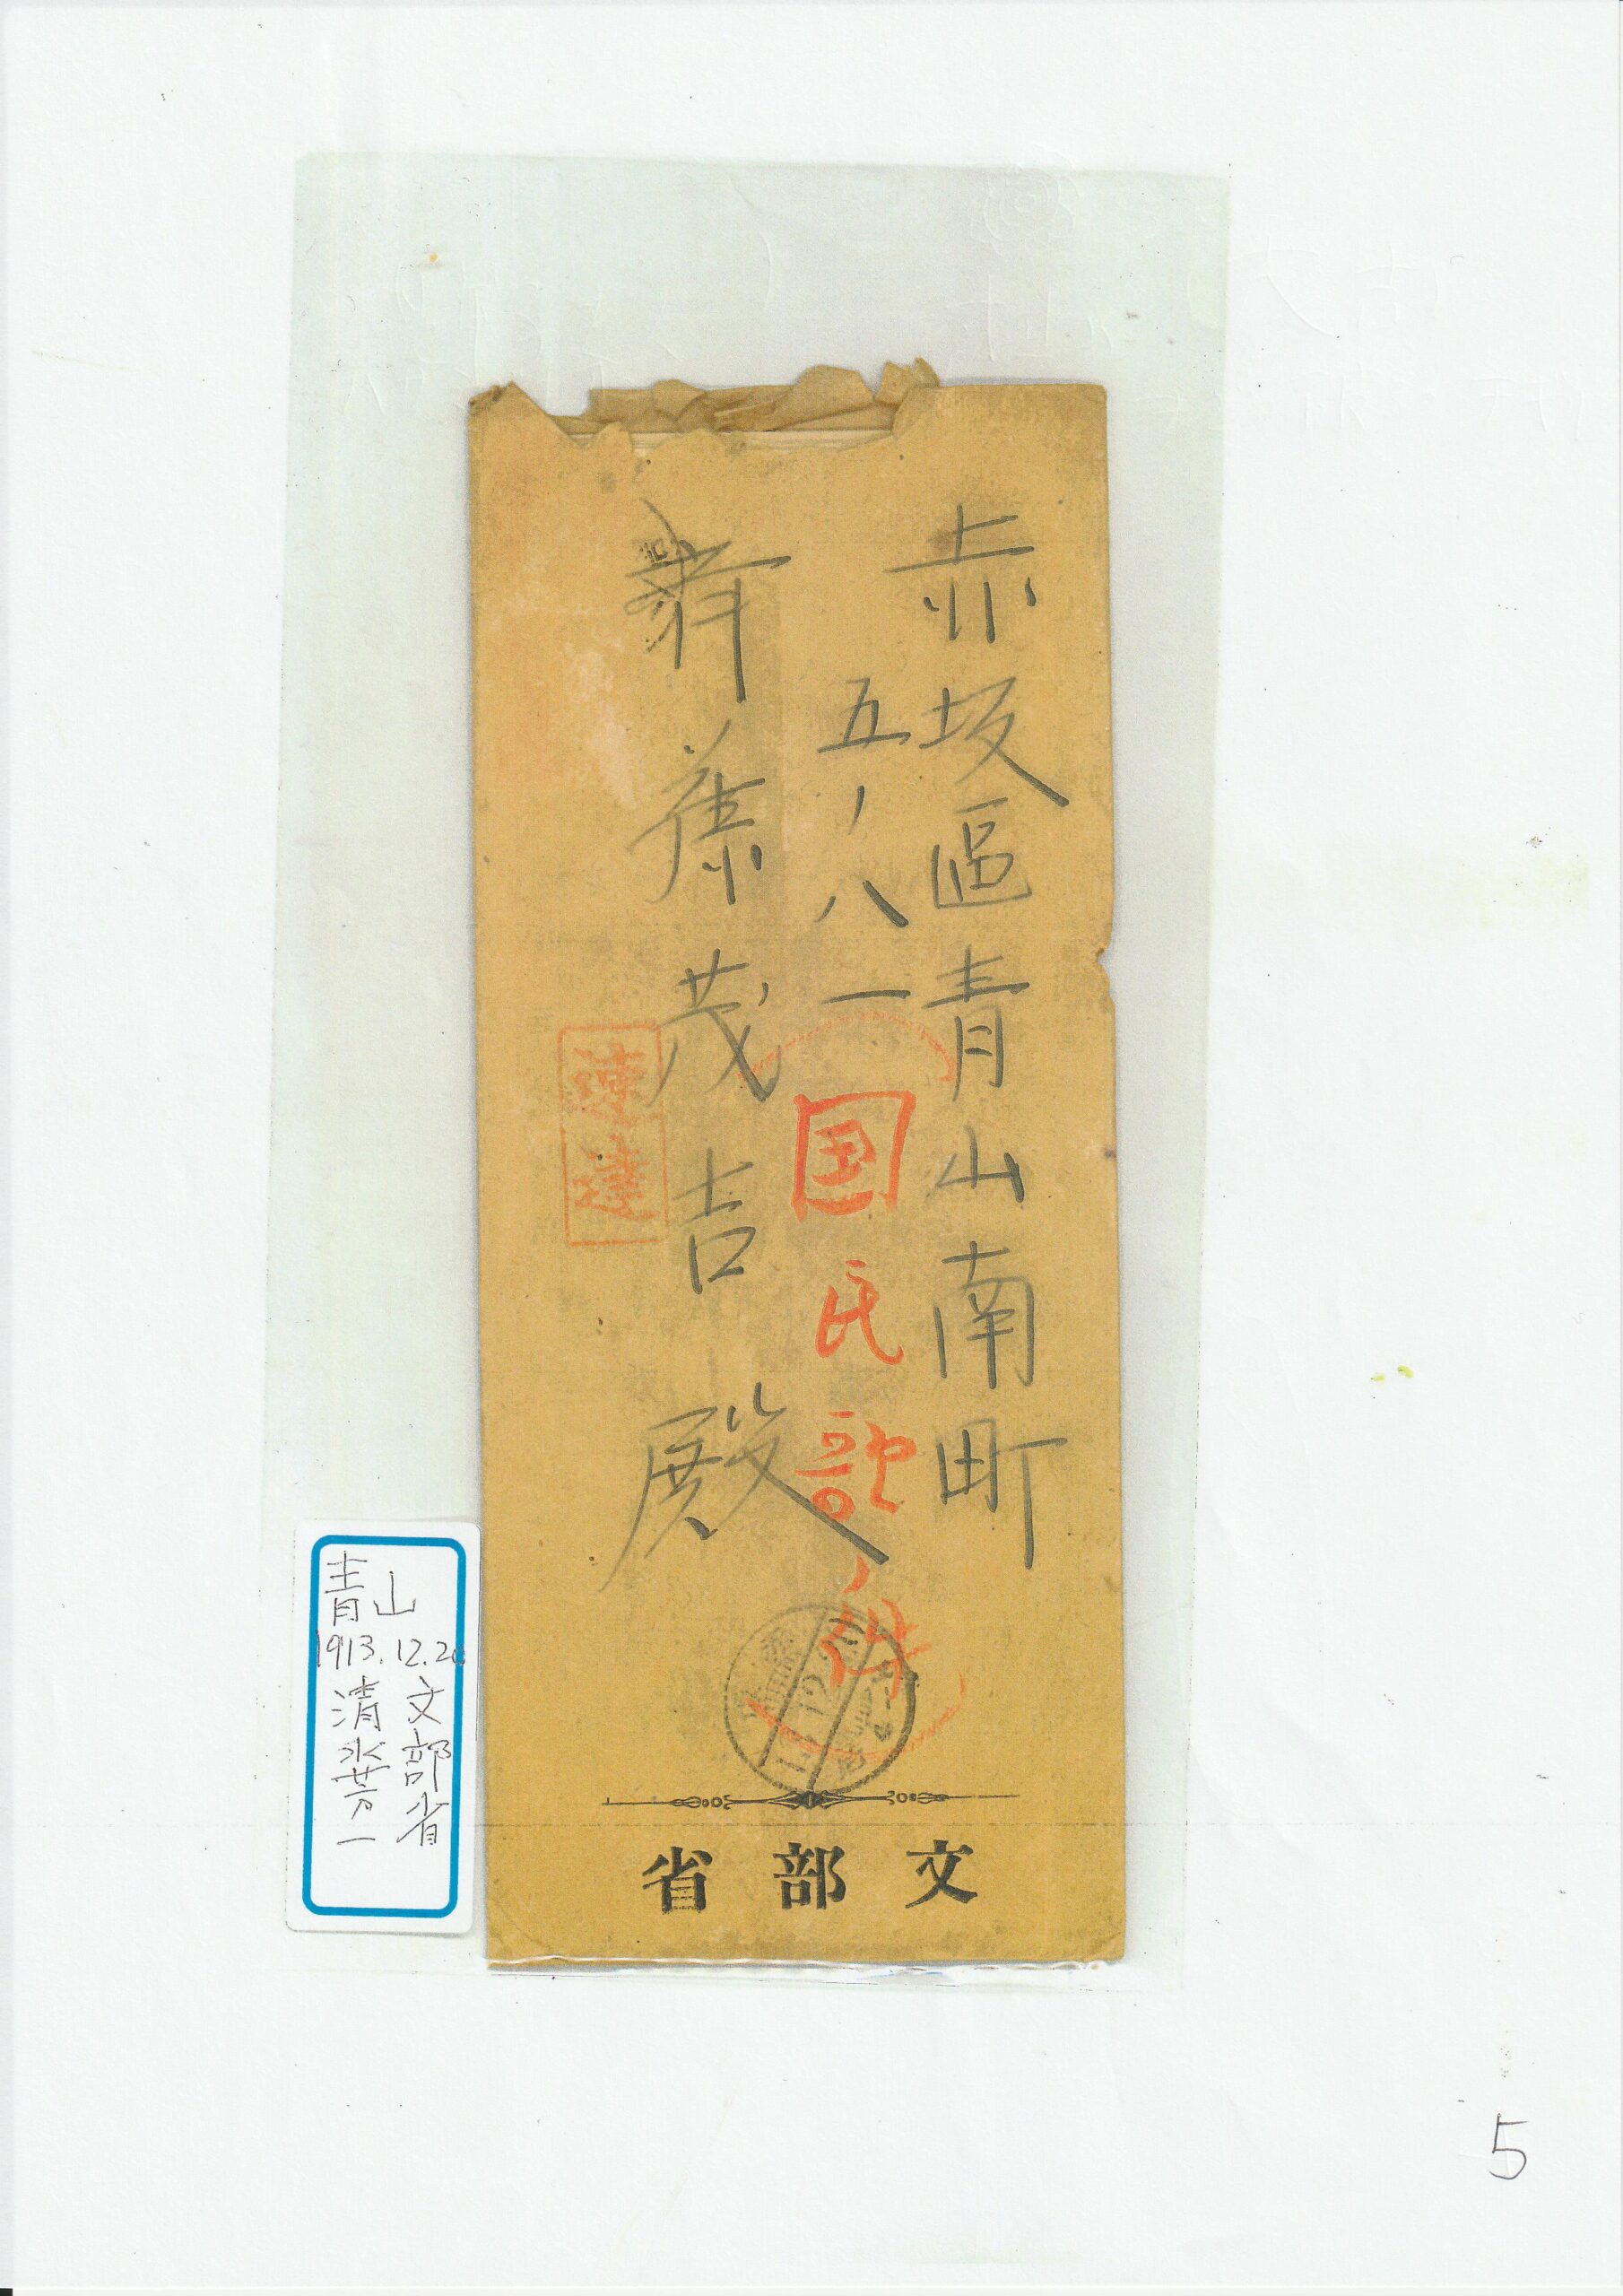 赤坂區青山南町
五ノ八一
齋藤茂吉殿
速達
国民歌ノ件
17.12.20
文部省
青山
1913.12.20
文部省
清水芳一
5